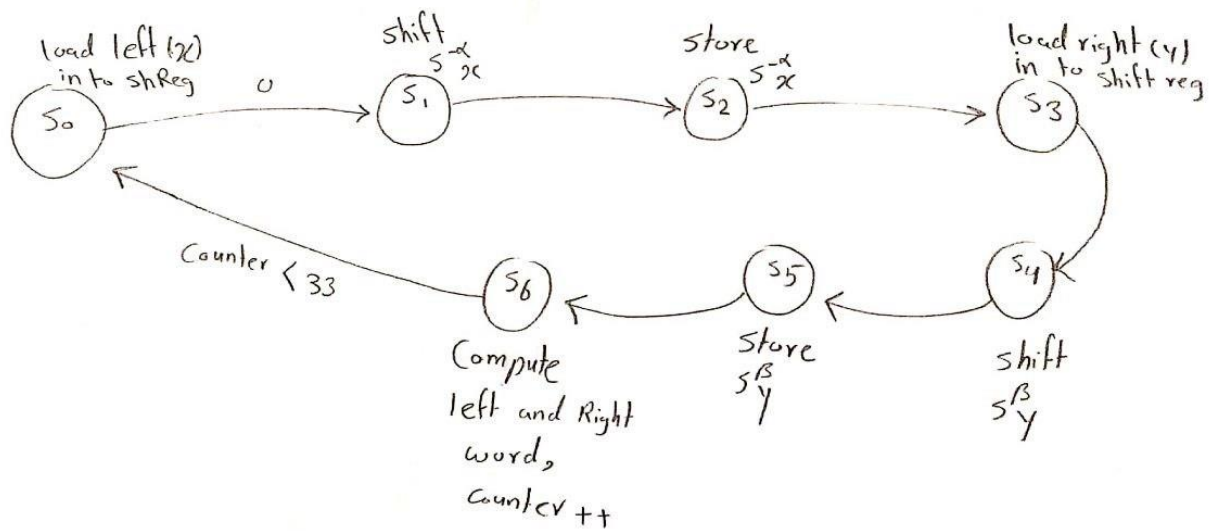 load left (x)
in to shReg
S0
0
shift
S^-α x
S1
store
S^-α x
S2
load right (y)
in to shift reg
S3
S4
shift
S^β y
S5
store
S^β y
S6
Compute
left and Right
word,
counter ++
Counter < 33